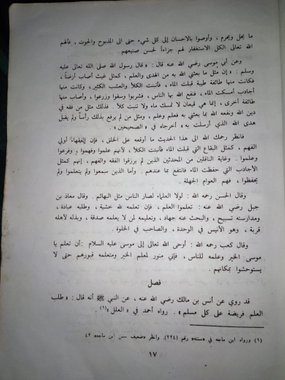 ما يحل ويحرم ، وأوصوا بالاحسان إلى كل شيء حتى إلى المذبوح والحوت ، فألهم
الله تعالى الكل الاستغفار لهم جزاءً لحسن صنيعهم .
وعن أبي موسى رضي الله عنه : « قال رسول الله صلى الله تعالى عليه
وسلم : « إن مثل ما بعثني الله به من الهدى والعلم ، كمثل غيث أصاب أرضاً ،
فكانت منها طائفة طيبة قبلت الماء ، فأنبتت الكلأ والعشب الكثير ، وكانت منها
أجادب أمسكت الماء ، فنفع الله بها الناس ، فشربوا وسقوا وزرعوا ، وأصاب منها
طائفة أخرى ، إنما هي قيعان لا تمسك ماء ولا تنبت كلأ فذلك مثل من فقه في
دين الله ونفعه الله بما بعثني به فعلم وعلم ، ومثل من لم يرفع بذلك رأساً ولم يقبل
هدى الله الذي أرسلت به » أخرجاه في « الصحيحين » .
فانظر رحمك الله إلى هذا الحديث ما أوقعه على الخلق ، فإن الفقهاء أولي
الفهم ، كمثل البقاع التي قبلت الماء فأنبتت الكلأ ، لأنهم علموا وفهموا ، وفرعوا
وعلموا . وغاية الناقلين من المحدثين الذين لم يرزقوا الفقه والفهم ، إنهم كمثل
الأجادب التي حفظت الماء فانتفع بما عندهم . وأما الذين سمعوا ولم يتعلموا ولم
يحفظوا ، فهم العوام الجهلة .
وقال الحسن رحمه الله : لولا العلماء لصار الناس مثل البهائم . وقال معاذ بن
جبل رضي الله عنه : تعلموا العلم ، فإن تعلمه لله خشية ، وطلبه عبادة ،
ومدارسته تسبيح ، والبحث عنه جهاد ، وتعليمه لمن لا يعلمه صدقة ، وبذله لأهله
قربة ، وهو الأنيس في الوحدة ، والصاحب في الخلوة .
وقال كعب رحمه الله : أوحى الله تعالى إلى موسى عليه السلام : أن تعلم يا
موسى الخير وعلمه للناس ، فإني منور لمعلم الخير ومتعلمه قبورهم حتى لا
يستوحشوا بمكانهم .
فصل
قد روي عن أنس بن مالك رضي الله عنه ، عن النبي ﷺ أنه قال : « طلب
العلم فريضة على كل مسلم » . رواه أحمد في « العلل » (١) .
(١) ورواه ابن ماجه في سننه رقم (٢٢٤)
١٧